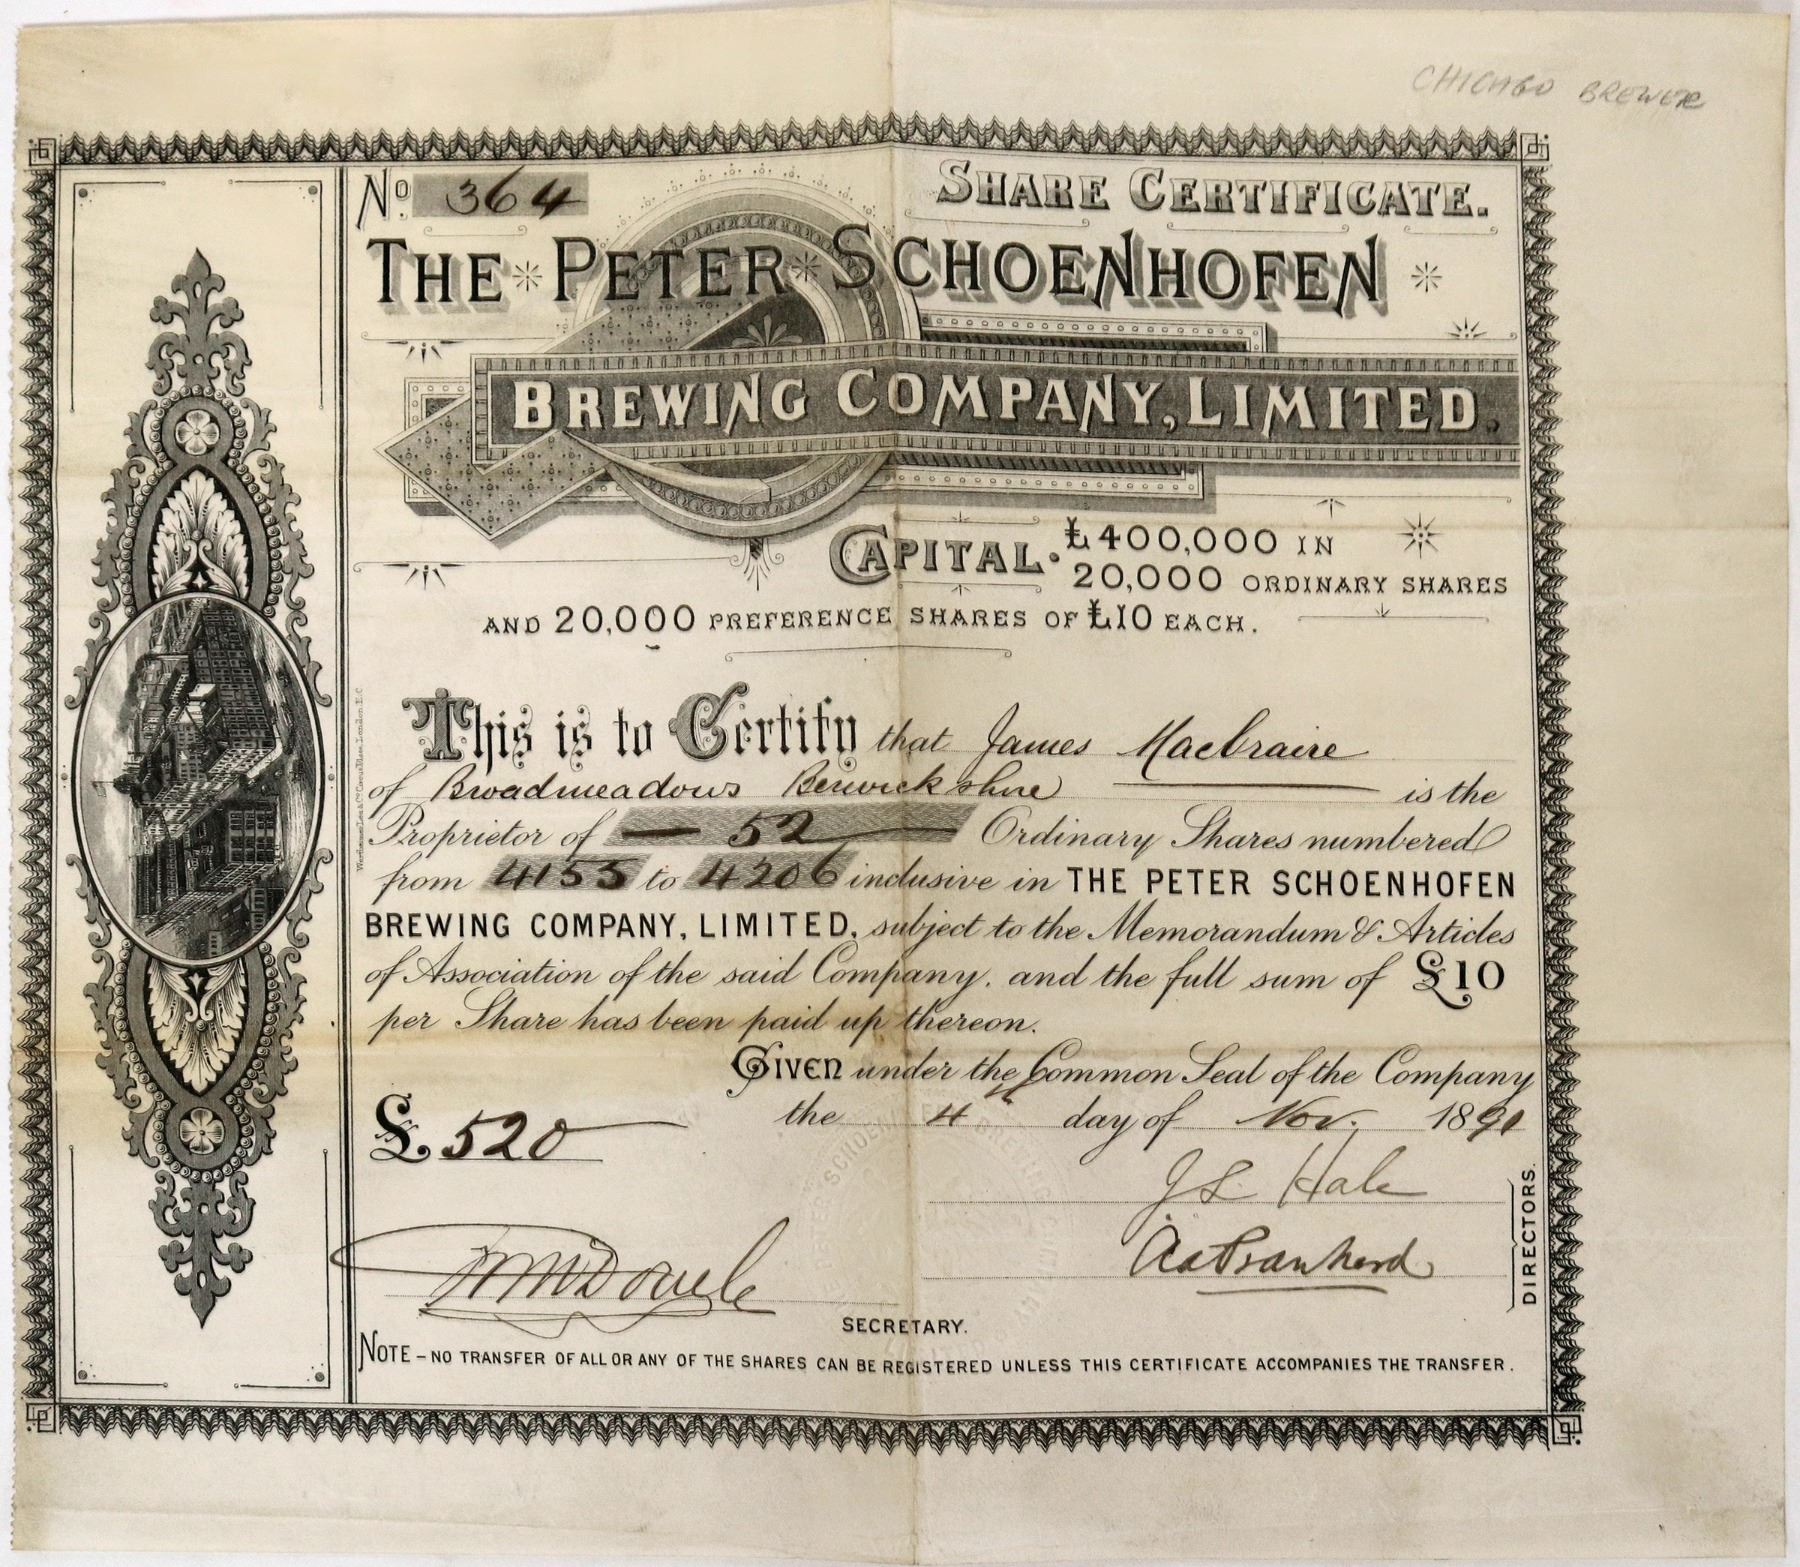 CHICAGO BREWER
No. 364
SHARE CERTIFICATE.
THE PETER SCHOENHOFEN
BREWING COMPANY, LIMITED.
CAPITAL. £400,000 IN
20,000 ORDINARY SHARES
AND 20,000 PREFERENCE SHARES OF £10 EACH.
This is to Certify that James Macbraire
of Broadmeadows Berwickshire is the
Proprietor of — 52 — Ordinary Shares numbered
from 4155 to 4206 inclusive in THE PETER SCHOENHOFEN
BREWING COMPANY, LIMITED, subject to the Memorandum & Articles
of Association of the said Company, and the full sum of £10
per Share has been paid up thereon.
GIVEN under the Common Seal of the Company
£520
the 4th day of Nov. 1891
J L Hale
DIRECTORS.
SECRETARY.
NOTE – NO TRANSFER OF ALL OR ANY OF THE SHARES CAN BE REGISTERED UNLESS THIS CERTIFICATE ACCOMPANIES THE TRANSFER.